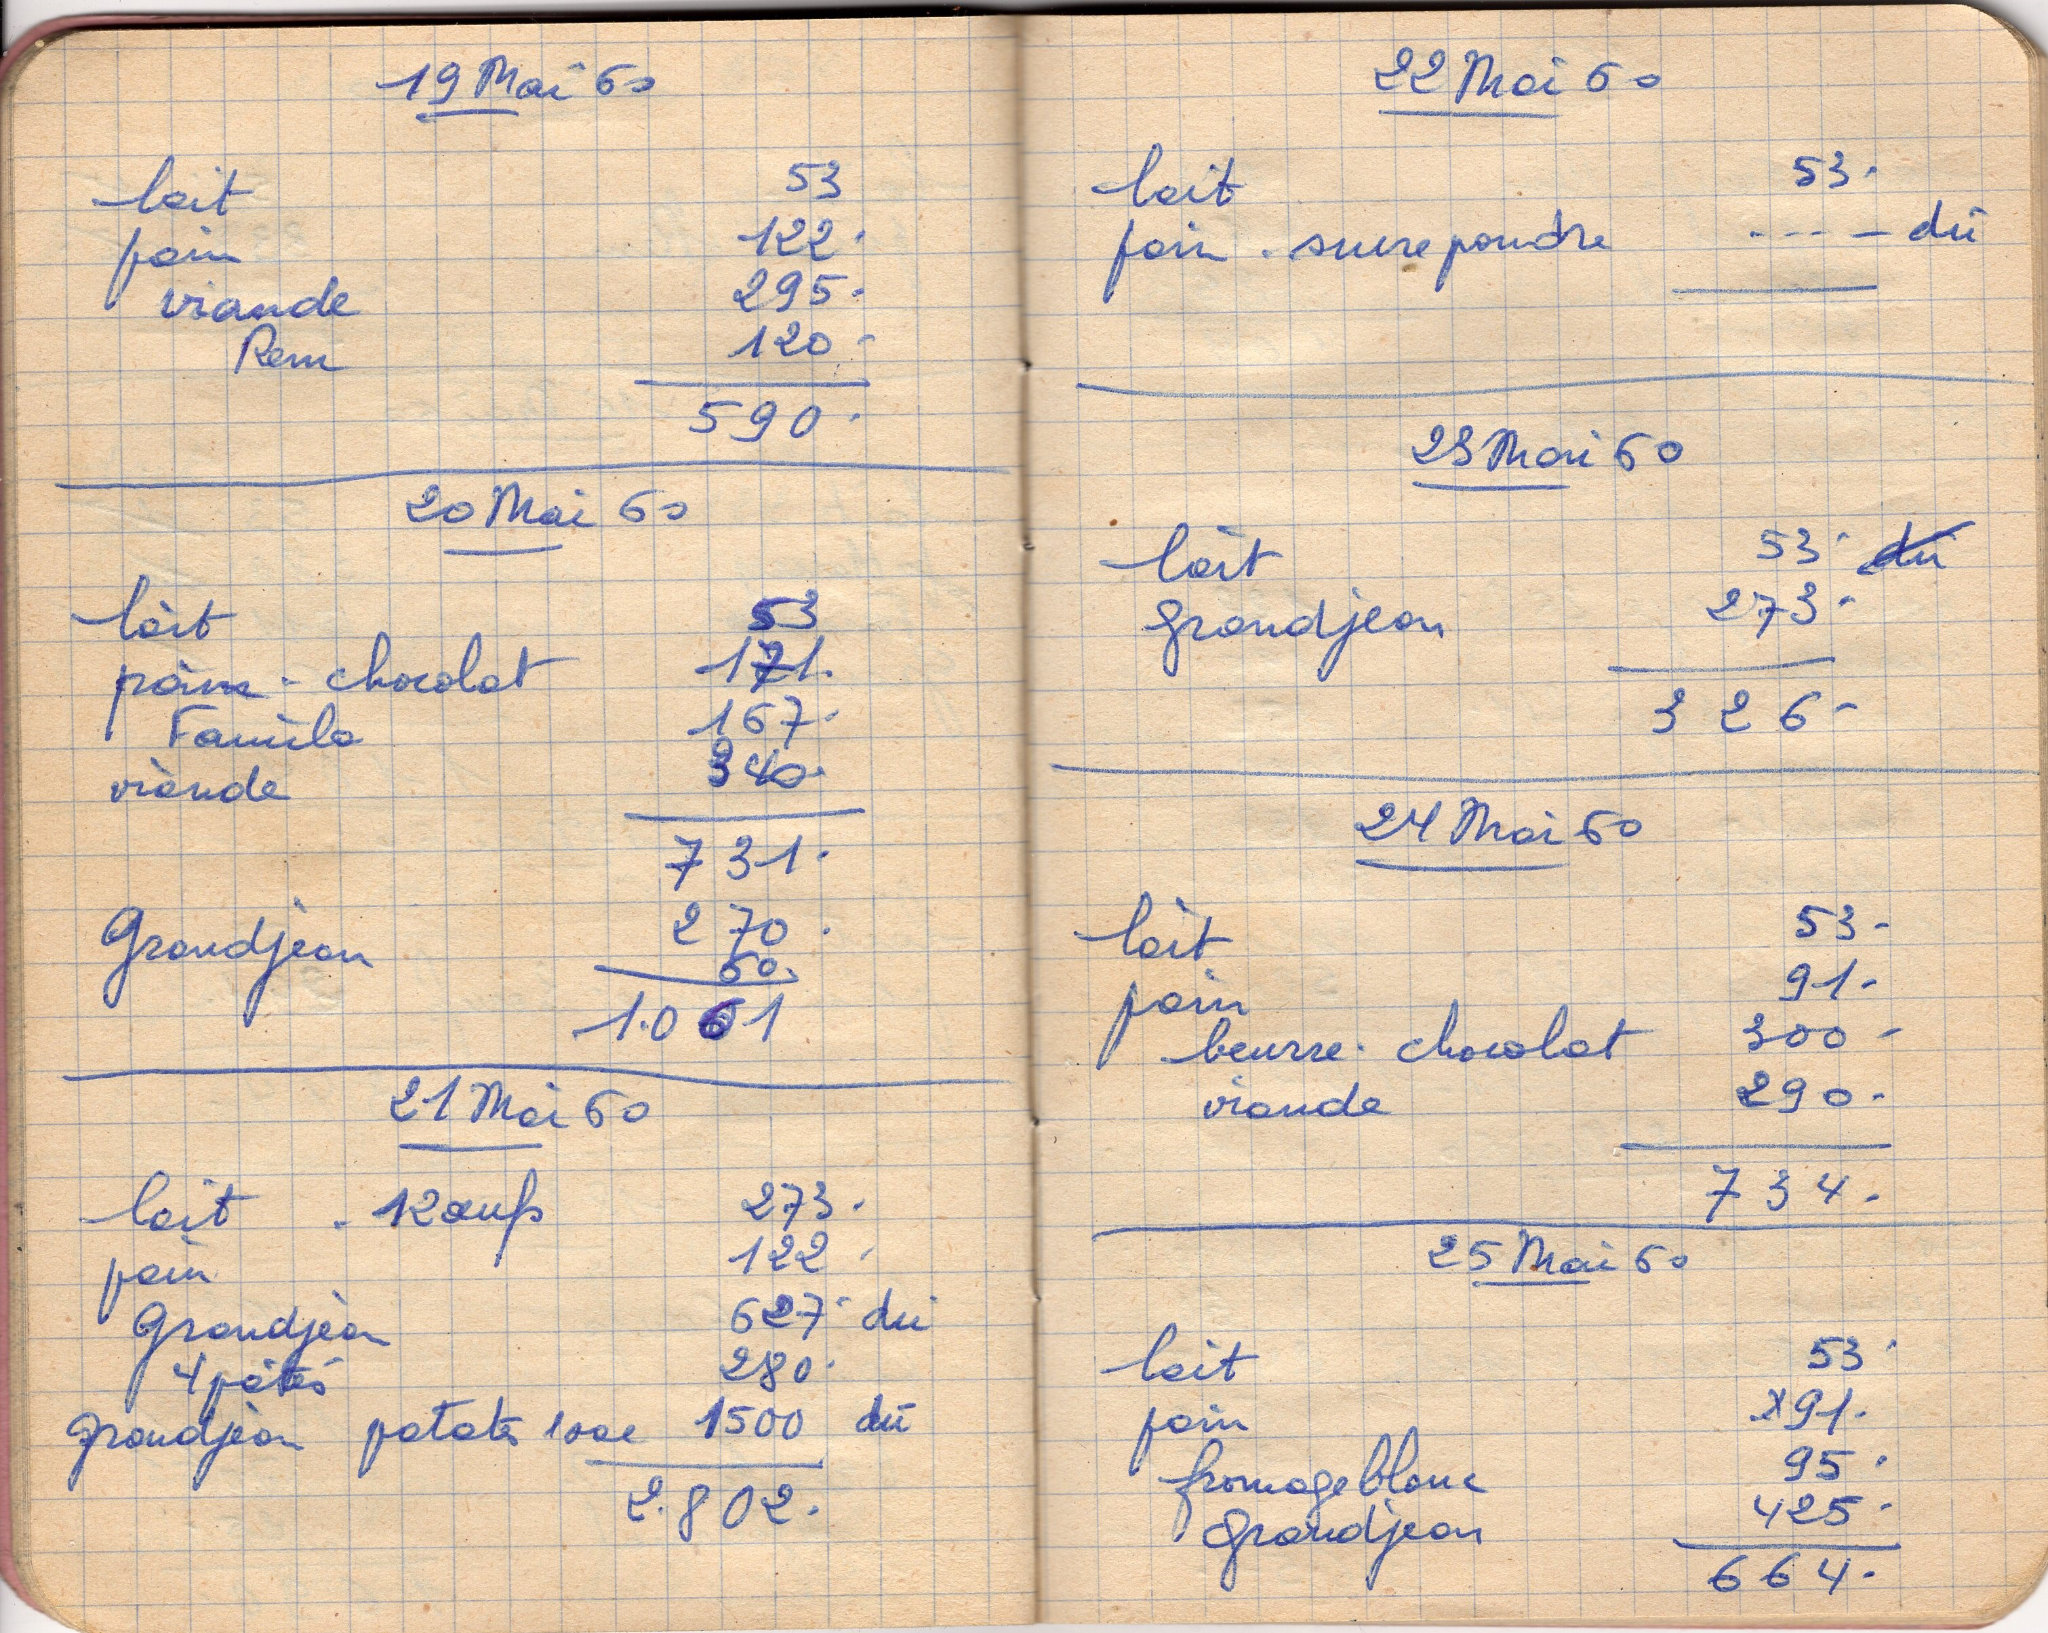 19 Mai 60
lait 53
pain 122.
viande 295.
Rem 120-
590.
20 Mai 60
lait 53
pain - chocolat 171.
Familo 167.
viande 340.
731.
Grandjean 270.
60.
1.061
21 Mai 60
lait . 12 œufs 273.
pain 122.
Grandjean 627 dû
4 pâtés 280.
grandjean patates 1500 dû
2.802.
22 Mai 60
lait 53.
pain . sucre poudre ---- dû
23 Mai 60
lait 53. dû
grandjean 273-
326-
24 Mai 60
lait 53-
pain 91.
beurre. chocolat 300-
viande 290.
734.
25 Mai 60
lait 53.
pain 91.
fromage blanc 95.
grandjean 425.
664.